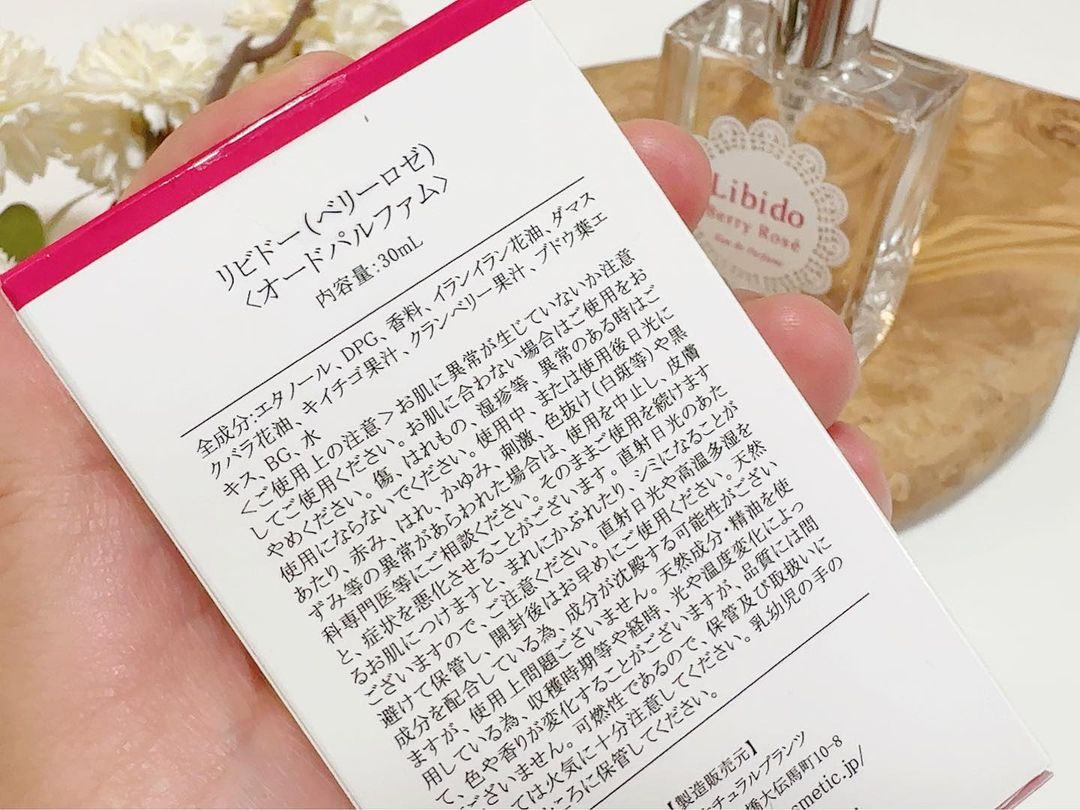 リビドー(ベリーロゼ)
〈オードパルファム〉
内容量:30mL
全成分:エタノール、DPG、香料、イランイラン花油、ダマス
クバラ花油、キイチゴ果汁、クランベリー果汁、ブドウ葉エ
キス、BG、水
<ご使用上の注意>お肌に異常が生じていないか注意
してご使用ください。お肌に合わない場合はご使用をお
やめください。傷、はれもの、湿疹等、異常のある時はご
使用にならないでください。使用中、または使用後日光に
あたり、赤み、はれ、かゆみ、刺激、色抜け(白斑等)や黒
ずみ等の異常があらわれた場合は、使用を中止し、皮膚
科専門医等にご相談ください。そのままご使用を続けます
と、症状を悪化させることがございます。直射日光のあた
るお肌につけますと、まれにかぶれたり、シミになることが
ございますので、ご注意ください。直射日光や高温多湿を
避けて保管し、開封後はお早めにご使用ください。天然
成分を配合している為、成分が沈殿する可能性がござい
ますが、使用上問題ございません。天然成分・精油を使
用している為、収穫時期等や経時、光や温度変化によっ
て、色や香りが変化することがございますが、品質には問
ございません。可燃性であるので、保管及び取扱いに
ては火気に十分注意してください。乳幼児の手の
ころに保管してください。
【製造販売元】
チュラルプランツ
橋大伝馬町10-8
smetic.jp/
Libido
Berry Rosé
Eau de Parfum